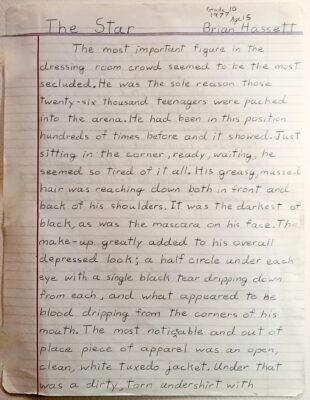 Grade 10
1977 Age 15
The Star Brian Hassett
The most important figure in the
dressing room crowd seemed to be the most
secluded. He was the sole reason those
twenty-six thousand teenagers were packed
into the arena. He had been in this position
hundreds of times before and it showed. Just
sitting in the corner, ready, waiting, he
seemed so tired of it all. His greasy, mussed
hair was reaching down both in front and
back of his shoulders. It was the darkest of
black, as was the mascara on his face. The
make-up greatly added to his overall
depressed look; a half circle under each
eye with a single black tear dripping down
from each, and what appeared to be
blood dripping from the corners of his
mouth. The most noticable and out of
place piece of apparel was an open,
clean, white tuxedo jacket. Under that
was a dirty, torn undershirt with